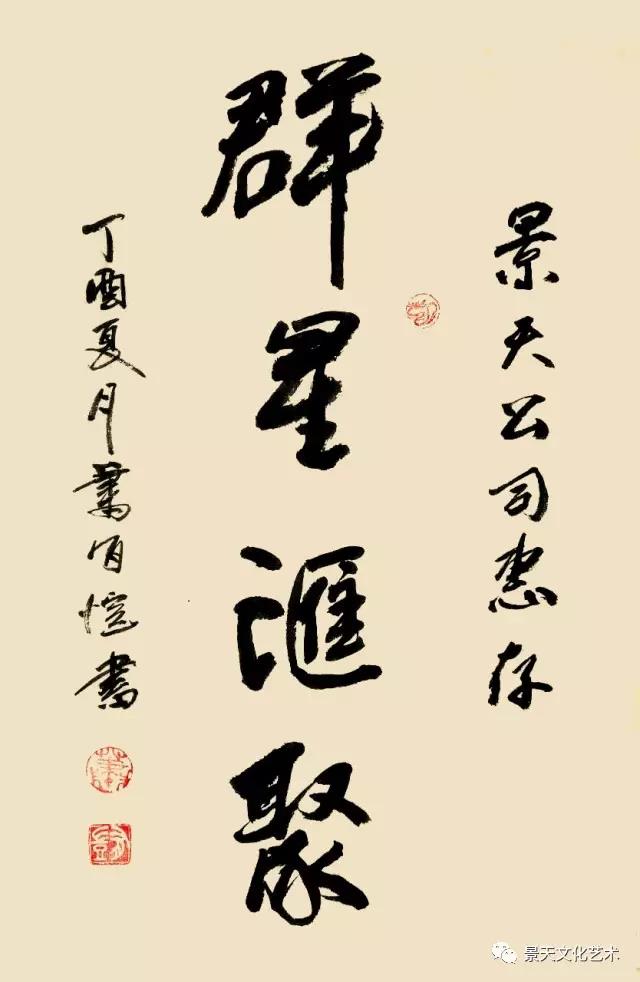 景天公司惠存
群星滙聚
丁酉夏月 書
景天文化艺术